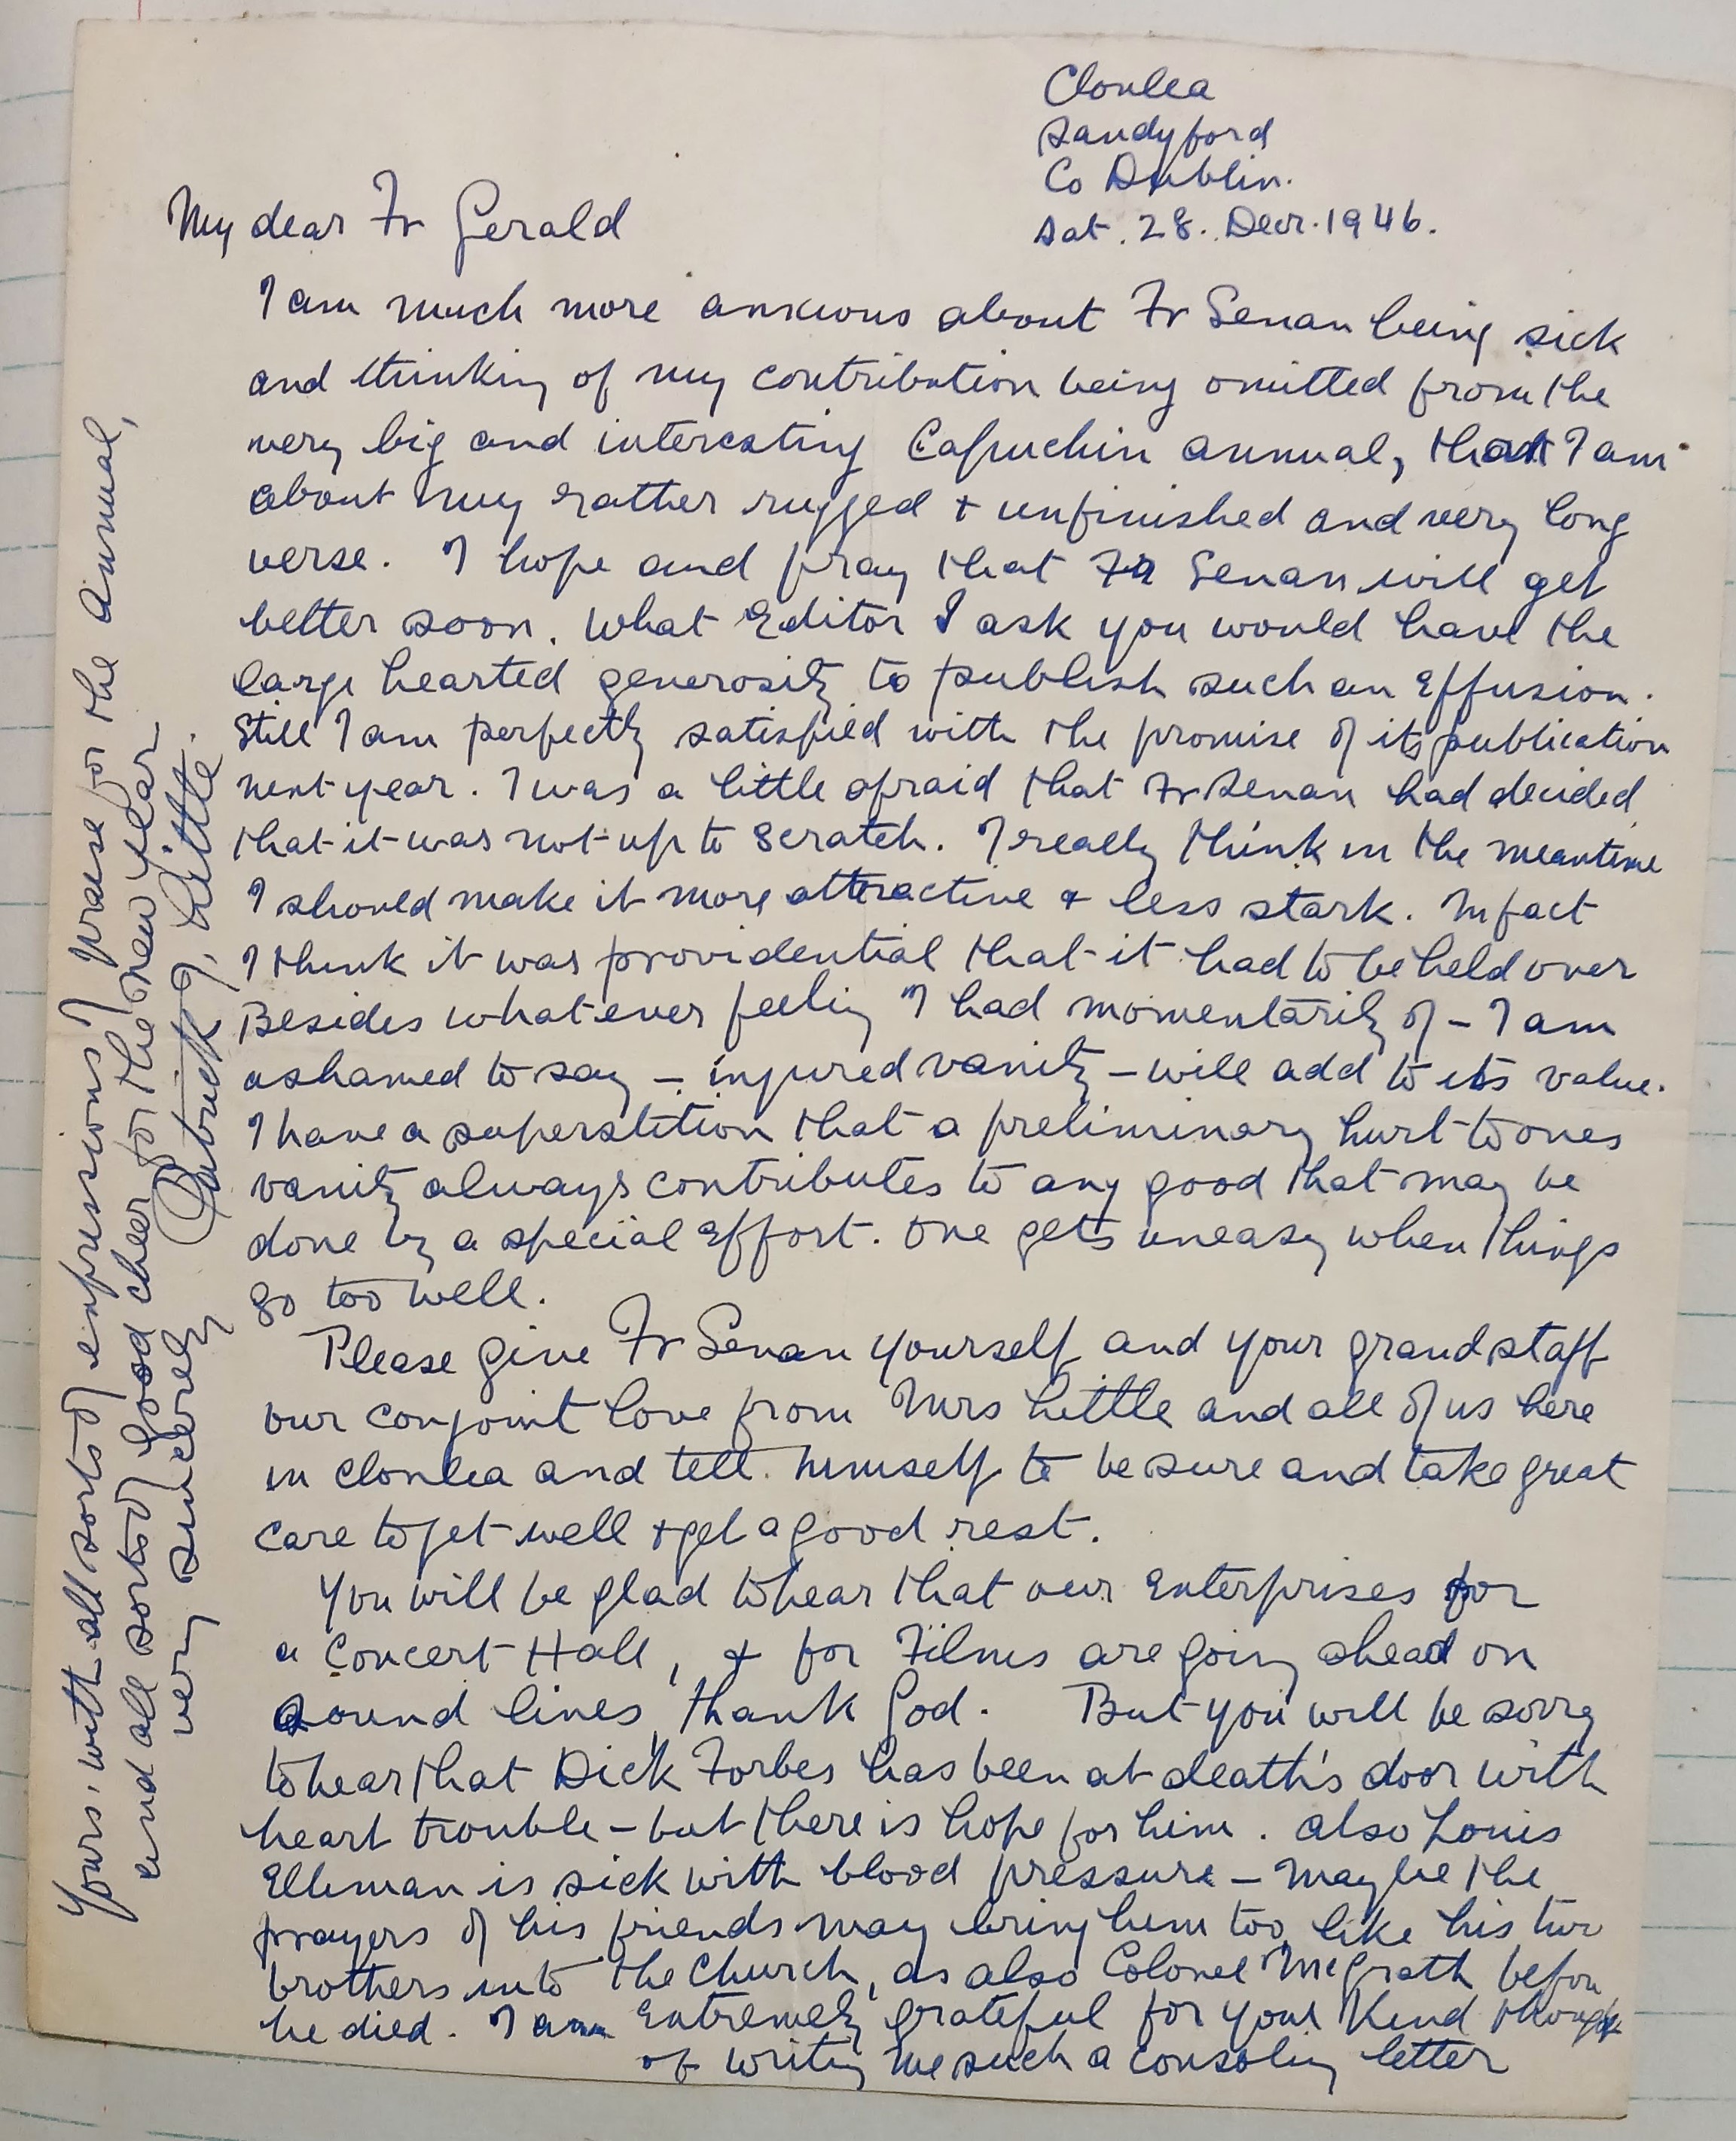 Clonlea
Sandyford
Co Dublin.
Sat. 28. Decr. 1946.
My dear Fr Gerald
I am much more anxious about Fr Senan being sick
and thinking of my contribution being omitted from the
very big and interesting Capuchin annual, than I am
about my rather rugged & unfinished and very long
verse. I hope and pray that Fr Senan will get
better soon. What Editor I ask you would have the
large hearted generosity to publish such an Effusion.
Still I am perfectly satisfied with the promise of its publication
next year. I was a little afraid that Fr Senan had decided
that it was not up to scratch. I really think in the meantime
I should make it more attractive & less stark. In fact
I think it was providential that it had to be held over
Besides whatever feeling I had momentarily of – I am
ashamed to say – injured vanity – will add to its value.
I have a superstition that a preliminary hurt to ones
vanity always contributes to any good that may be
done by a special Effort. One gets uneasy when things
go too well.
Please give Fr Senan yourself and your grand staff
our conjoint love from Mrs Little and all of us here
in Clonlea and tell himself to be sure and take great
care to get well & get a good rest.
You will be glad to hear that our Enterprises for
a Concert Hall, & for Films are going ahead on
sound lines, thank God. But you will be sorry
to hear that Dick Forbes has been at death's door with
heart trouble – but there is hope for him. Also Louis
Elliman is sick with blood pressure – maybe the
prayers of his friends may bring him too, like his two
brothers into the Church, as also Colonel McGrath before
he died. I am Extremely grateful for your kind thought
of writing me such a consoling letter
Yours, with all sorts of expressions of praise for the Annual,
and all sorts of good cheer for the new year
very sincerely
Patrick J. Little.